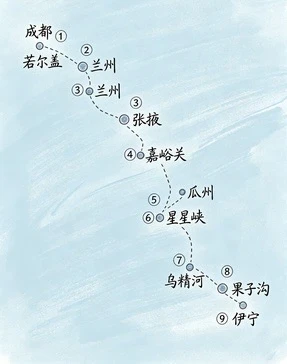 成都 ①
若尔盖
② 兰州
③ 兰州
③ 张掖
④ 嘉峪关
⑤ 瓜州
⑥ 星星峡
⑦ 乌精河
⑧ 果子沟
⑨ 伊宁